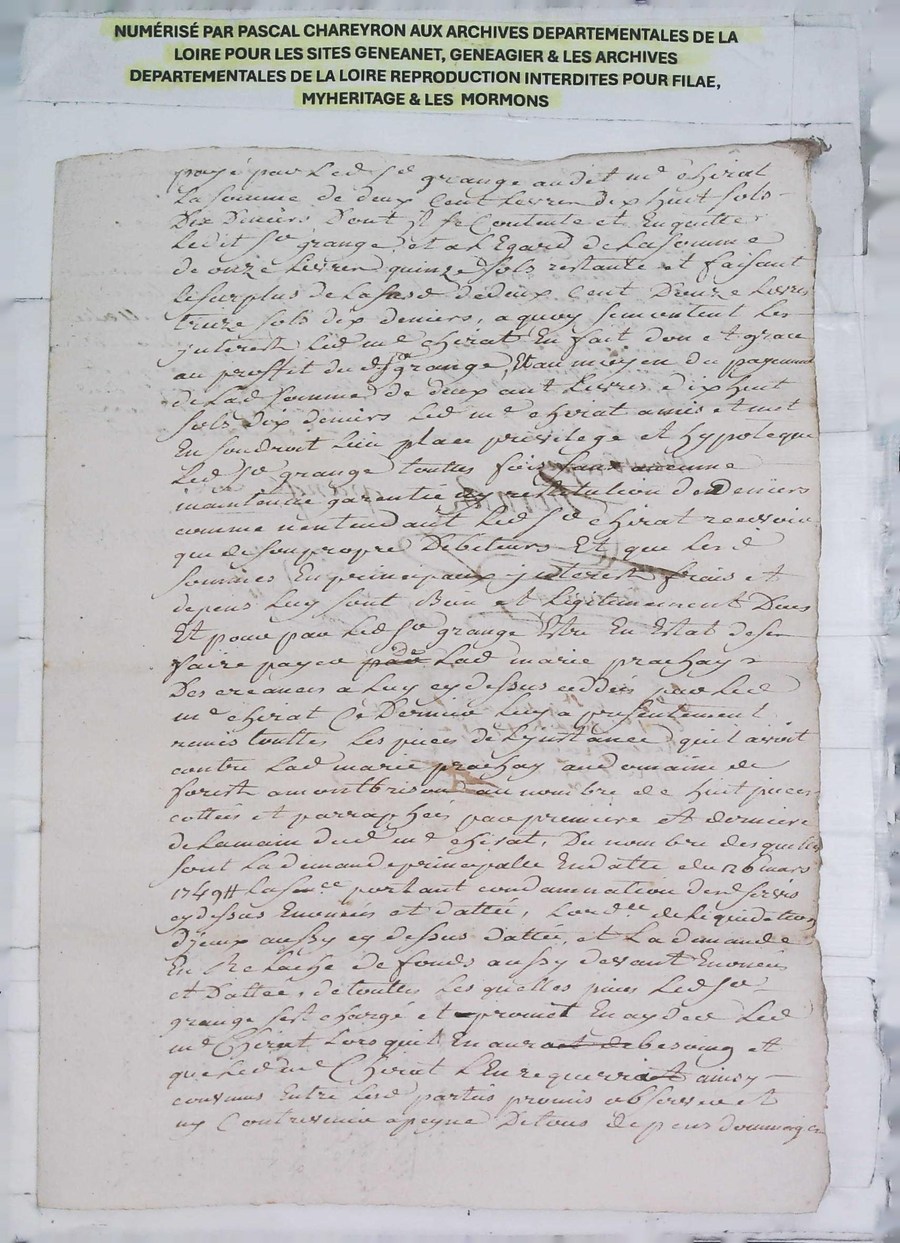 NUMÉRISÉ PAR PASCAL CHAREYRON AUX ARCHIVES DEPARTEMENTALES DE LA
LOIRE POUR LES SITES GENEANET, GENEAGIER & LES ARCHIVES
DEPARTEMENTALES DE LA LOIRE REPRODUCTION INTERDITES POUR FILAE,
MYHERITAGE & LES MORMONS
payé par Led Sr grange audit me chirat
La somme de deux Cent Livres dix huit Sols
Dix Deniers Dont Il se Contente et Enquitte
Ledit Sr grange, et a L'Egard de La Somme
de onze Livres quinze Sols restante et faisant
Le surplus de La de deux Cent Douze Livres
treize Sols dix deniers, a quoy Se montent Les
jnterest Led me chirat En fait don et grace
au proffit du d Sr grange, Et au moyen du payement
de Lad Somme de deux cent Livres dix huit
Sols dix deniers Led me chirat a mis et met
En Son droit Lieu place privilege et hypoteque
Led Sr grange toutes fois Sans aucunne
maintenue garentie ny restitution de Deniers
comme n'entendant Led Sr chirat recevoir
que de Son propre Debiteurs Et que Les d
Sommes En principaux jnterest frais et
depens Luy Sont Bien et Legitimement Dues
Et pour par Led Sr grange Estre En Estat de Se
faire payer Lad marie prachay
Des creances a Luy cy dessus cedées par Led
me chirat Ce Dernier Luy a presentement
remis touttes Les pieces de L'jnstance qu'il avoit
contre Lad marie prachay au domaine de
forest a montbrison au nombre de huit pieces
cottées et parraphées par premiere et derniere
de La main dud me chirat, Du nombre des quelles
Sont La demande principalle En datte du 26 mars
1749 La Sance portant condamnation des d Servis
cy dessus Enoncés et dattée, L'ordce de Liquidation
D'jceux aussy cy dessus dattée, et La demande
En Relache de fonds aussy devant Enoncée
et Dattée, de touttes Les quelles pieces Led Sr
grange S'est chargé et promet En ayder Led
me Chirat Lorsquil En aura besoing et
que Led me Chirat L'En requerrira ainsy
convenus Entre Lesd parties promis observer et
ny Contrevenir a peyne De tous depens dommages